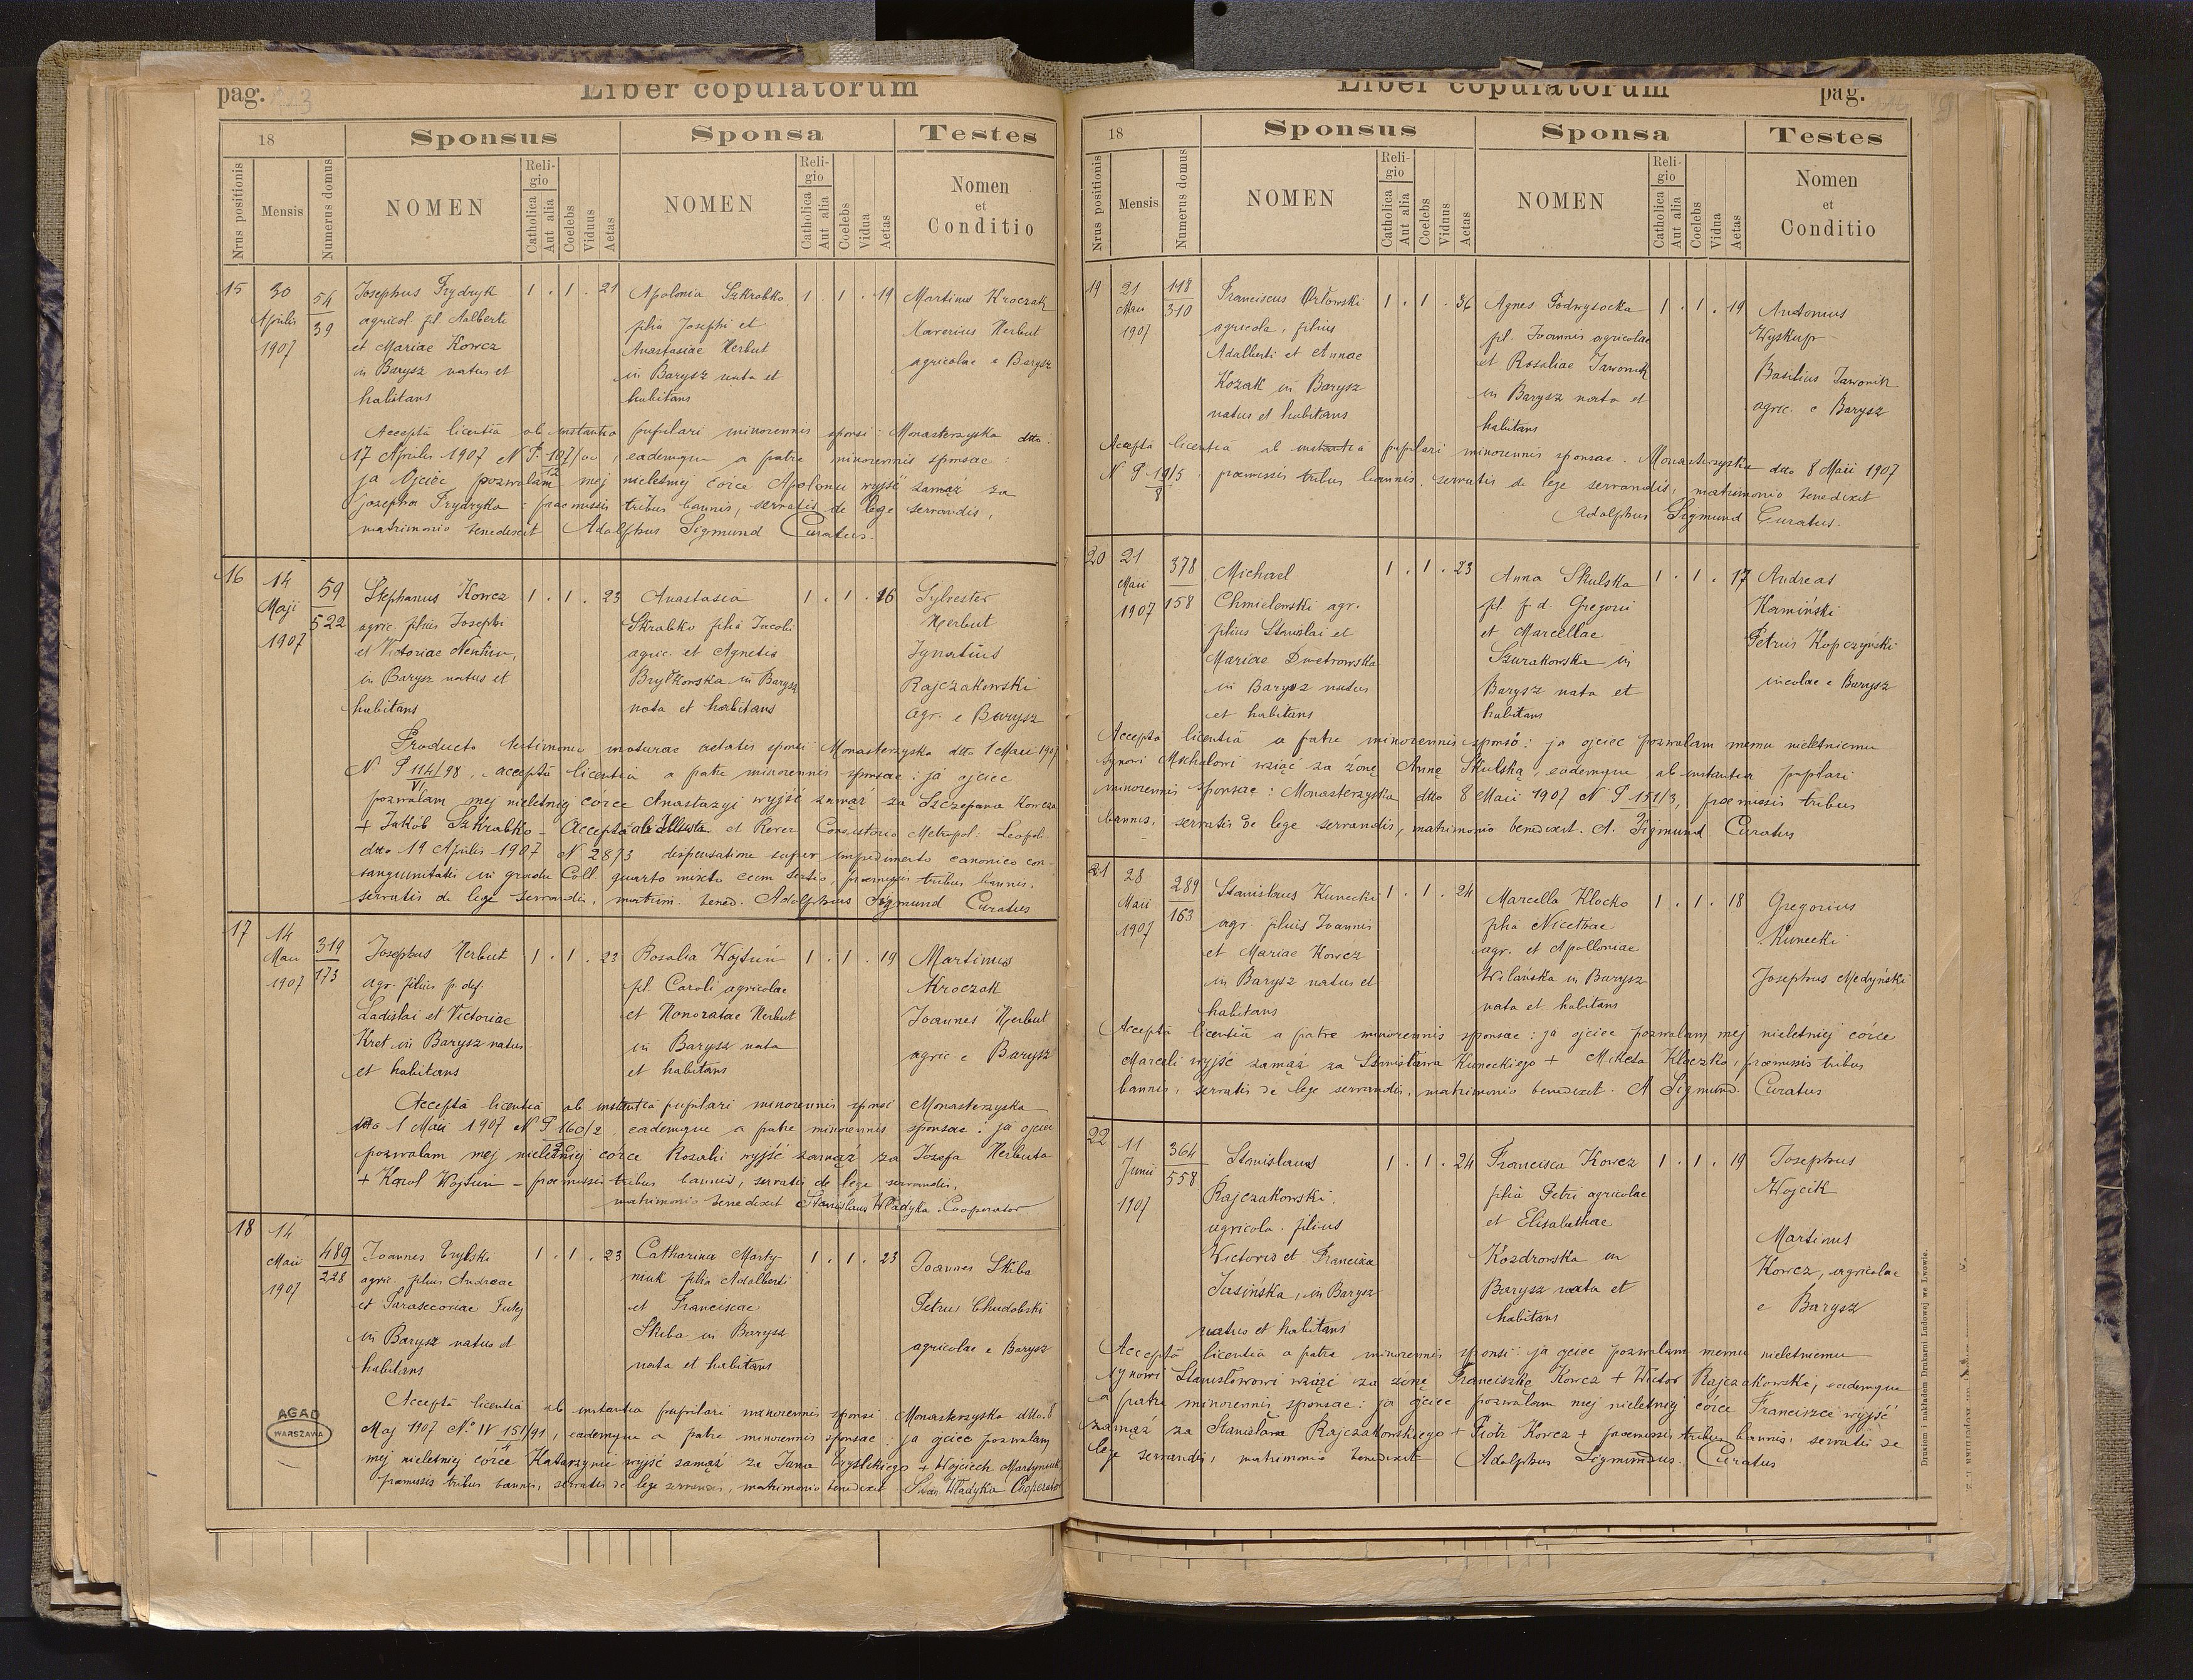 pag. 123
Liber copulatorum
18
Sponsus
Sponsa
Testes
Nrus positionis
Mensis
Numerus domus
NOMEN
Religio
Catholica
Aut alia
Coelebs
Viduus
Aetas
NOMEN
Religio
Catholica
Aut alia
Coelebs
Vidua
Aetas
Nomen
et
Conditio
15
30
Aprilis
1907
54
39
Josephus Frydryk
agricol. fil. Adalberti
et Mariae Kowcz
in Barysz natus et
habitans
1 . 1 . 21
Apolonia Szkrabko
filia Josephi et
Anastasiae Herbut
in Barysz nata et
habitans
1 . 1 . 19
Martinus Kroczak
Xaverius Herbut
agricolae e Barysz
Acceptâ licentiâ ab instantia pupilari minorennis sponsi: Monasterzyska dtto:
17 Aprilis 1907 N P. 107/00, eademque a patre minorennis sponsae:
12
ja Ojciec pozwalam mej nieletniej córce Apolonii wyjść zamąż za
Josepha Frydryka: praemissis tribus bannis, servatis de lege servandis,
matrimonio benedixit Adolphus Sigmund Curatus.
16
14
Maji
1907
59
522
Stephanus Kowcz
agric. filius Josephi
et Victoriae
in Barysz natus et
habitans
1 . 1 . 23
Anastasia
Szkrabko filia Jacobi
agric. et Agnetis
Bryłkowska in Barysz
nata et habitans
1 . 1 . 16
Sylvester
Herbut
Ignatius
Rajczakowski
agr. e Barysz
Producto testimonio maturae aetatis sponsi Monasterzyska dtto 1 Maii 1907
N P 114/98, acceptâ licentiâ a patre minorennis sponsae: ja ojciec
VI
pozwalam mej nieletniej córce Anastazyi wyjść zamąż za Szczepana Kowcza
+ Jakób Szkrabko – Acceptâ ab et Rever Consistorio Metropol: Leopol.
dtto 19 Aprilis 1907 N 2873 dispensatione super impedimento canonico con-
sanguinitatis in gradu Coll. quarto mixto cum tertio, praemissis tribus bannis,
servatis de lege servandis, matrim. bened. Adolphus Sigmund Curatus
17
14
Maii
1907
319
173
Josephus Herbut
agr. filius p. def.
Ladislai et Victoriae
Kret in Barysz natus
et habitans
1 . 1 . 23
Rosalia Wojtuń
fil. Caroli agricolae
et Honoratae Herbut
in Barysz nata
et habitans
1 . 1 . 19
Martinus
Kroczak
Joannes Herbut
agric e Barysz
Acceptâ licentiâ ab instantiâ pupilari minorennis sponsi Monasterzyska
dtto 1 Maii 1907 N P 160/2, eademque a patre minorennis sponsae: ja ojciec
pozwalam mej nieletniej córce Rozalii wyjść zamąż za Józefa Herbuta
+ Karol Wojtuń – praemissis tribus bannis, servatis de lege servandis,
matrimonio benedixit Stanislaus Władyka Cooperator
18
14
Maii
1907
489
228
Joannes
agric. filius Andreae
et Parasceviae Futej
in Barysz natus et
habitans
1 . 1 . 23
Catharina Marty-
niuk filia Adalberti
et Franciscae
Skiba in Barysz
nata et habitans
1 . 1 . 23
Joannes Skiba
Petrus Chudobski
agricolae e Barysz
Acceptâ licentiâ ab instantia pupilari minorennis sponsi. Monasterzyska dtto. 8
Maj 1907 No IV 151/91, eademque a patre minorennis sponsae: ja ojciec pozwalam
mej nieletniej córce Katarzynie wyjść zamąż za Jana + Wojciech Martyniuk,
praemissis tribus bannis, servatis de lege servandis, matrimonio benedixit Władyka Cooperator
AGAD
WARSZAWA
Liber copulatorum
pag.
18
Sponsus
Sponsa
Testes
Nrus positionis
Mensis
Numerus domus
NOMEN
Religio
Catholica
Aut alia
Coelebs
Viduus
Aetas
NOMEN
Religio
Catholica
Aut alia
Coelebs
Vidua
Aetas
Nomen
et
Conditio
19
21
Maii
1907
118
310
Franciscus Orłowski
agricola, filius
Adalberti et Annae
Kozak in Barysz
natus et habitans
1 . 1 . 36
Agnes Podwysocka
fil. Joannis agricolae
et Rosaliae Jawornik
in Barysz nata et
habitans
1 . 1 . 19
Antonius
Wyskup
Basilius Jawornik
agric. e Barysz
Acceptâ licentiâ ab instantia pupilari minorennis sponsae. Monasterzyska dtto 8 Maii 1907
N P 19/5, praemissis tribus bannis, servatis de lege servandis, matrimonio benedixit
8
Adolphus Sigmund Curatus.
20
21
Maii
1907
378
158
Michael
Chmielowski agr.
filius Stanislai et
Mariae Dmetrowska
in Barysz natus
et habitans
1 . 1 . 23
Anna Skulska
fil. p. d. Gregorii
et Marcellae
Szurakowska in
Barysz nata et
habitans
1 . 1 . 17
Andreas
Kamiński
Petrus Kopczyński
incolae e Barysz
Acceptâ licentiâ a patre minorennis sponsi: ja ojciec pozwalam memu nieletniemu
synowi Michałowi wziąć za żonę Annę Skulską, eademque ab instantia pupilari
minorennis sponsae: Monasterzyska dtto 8 Maii 1907 N P 151/3, praemissis tribus
bannis, servatis de lege servandis, matrimonio benedixit. A. Sigmund Curatus
21
28
Maii
1907
289
163
Stanislaus Kunecki
agr. filius Joannis
et Mariae Kowcz
in Barysz natus et
habitans
1 . 1 . 24
Marcella Kloczko
filia Nicethae
agr. et Apolloniae
Wilańska in Barysz
nata et habitans
1 . 1 . 18
Gregorius
Kunecki
Josephus Medyński
Acceptâ licentiâ a patre minorennis sponsae: ja ojciec pozwalam mej nieletniej córce
Marceli wyjść zamąż za Stanisława Kuneckiego + Mikita Kloczko, praemissis tribus
bannis, servatis de lege servandis, matrimonio benedixit. A Sigmund. Curatus
22
11
Junii
1907
364
558
Stanislaus
Rajczakowski
agricola. filius
Victoris et Francisca
Jasińska, in Barysz
natus et habitans
1 . 1 . 24
Francisca Kowcz
filia Petri agricolae
et Elisabethae
Kozdrowska in
Barysz nata et
habitans
1 . 1 . 19
Josephus
Wojcik
Martinus
Kowcz, agricolae
e Barysz
Acceptâ licentiâ a patre minorennis sponsi: ja ojciec pozwalam memu nieletniemu
synowi Stanisławowi wziąć za żonę Franciszkę Kowcz + Wictor Rajczakowski, eademque
a patre minorennis sponsae: ja ojciec pozwalam mej nieletniej córce Franciszce wyjść
zamąż za Stanisława Rajczakowskiego + Piotr Kowcz + praemissis tribus bannis, servatis de
lege servandis, matrimonio benedixit Adolphus Sigmundus. Curatus
Drukiem i nakładem Drukarni Ludowej we Lwowie.